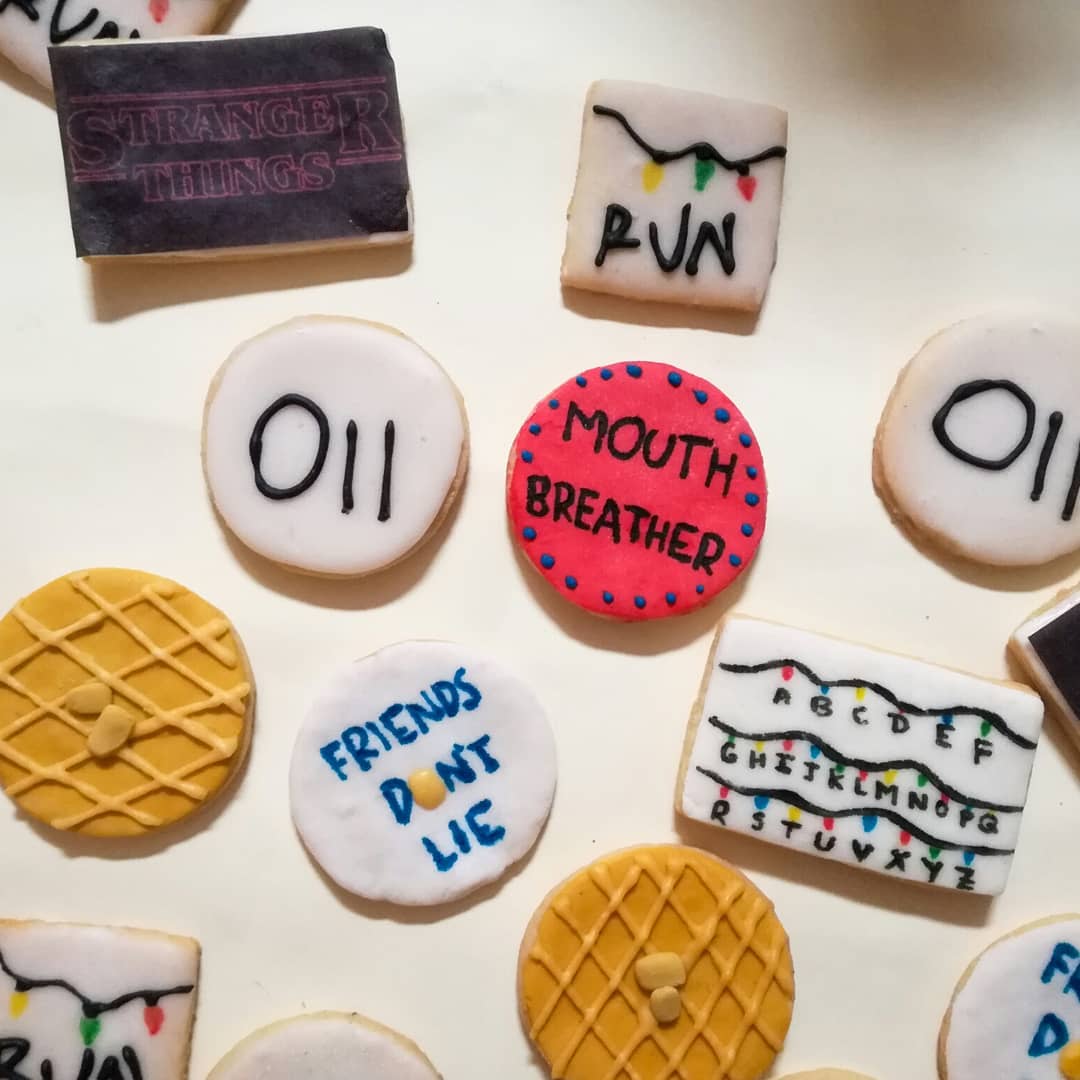 RUN
STRANGER
THINGS
RUN
011
MOUTH
BREATHER
011
FRIENDS
DON'T
LIE
A B C D E F
G H I J K L M N O P Q
R S T U V X Y Z
RUN